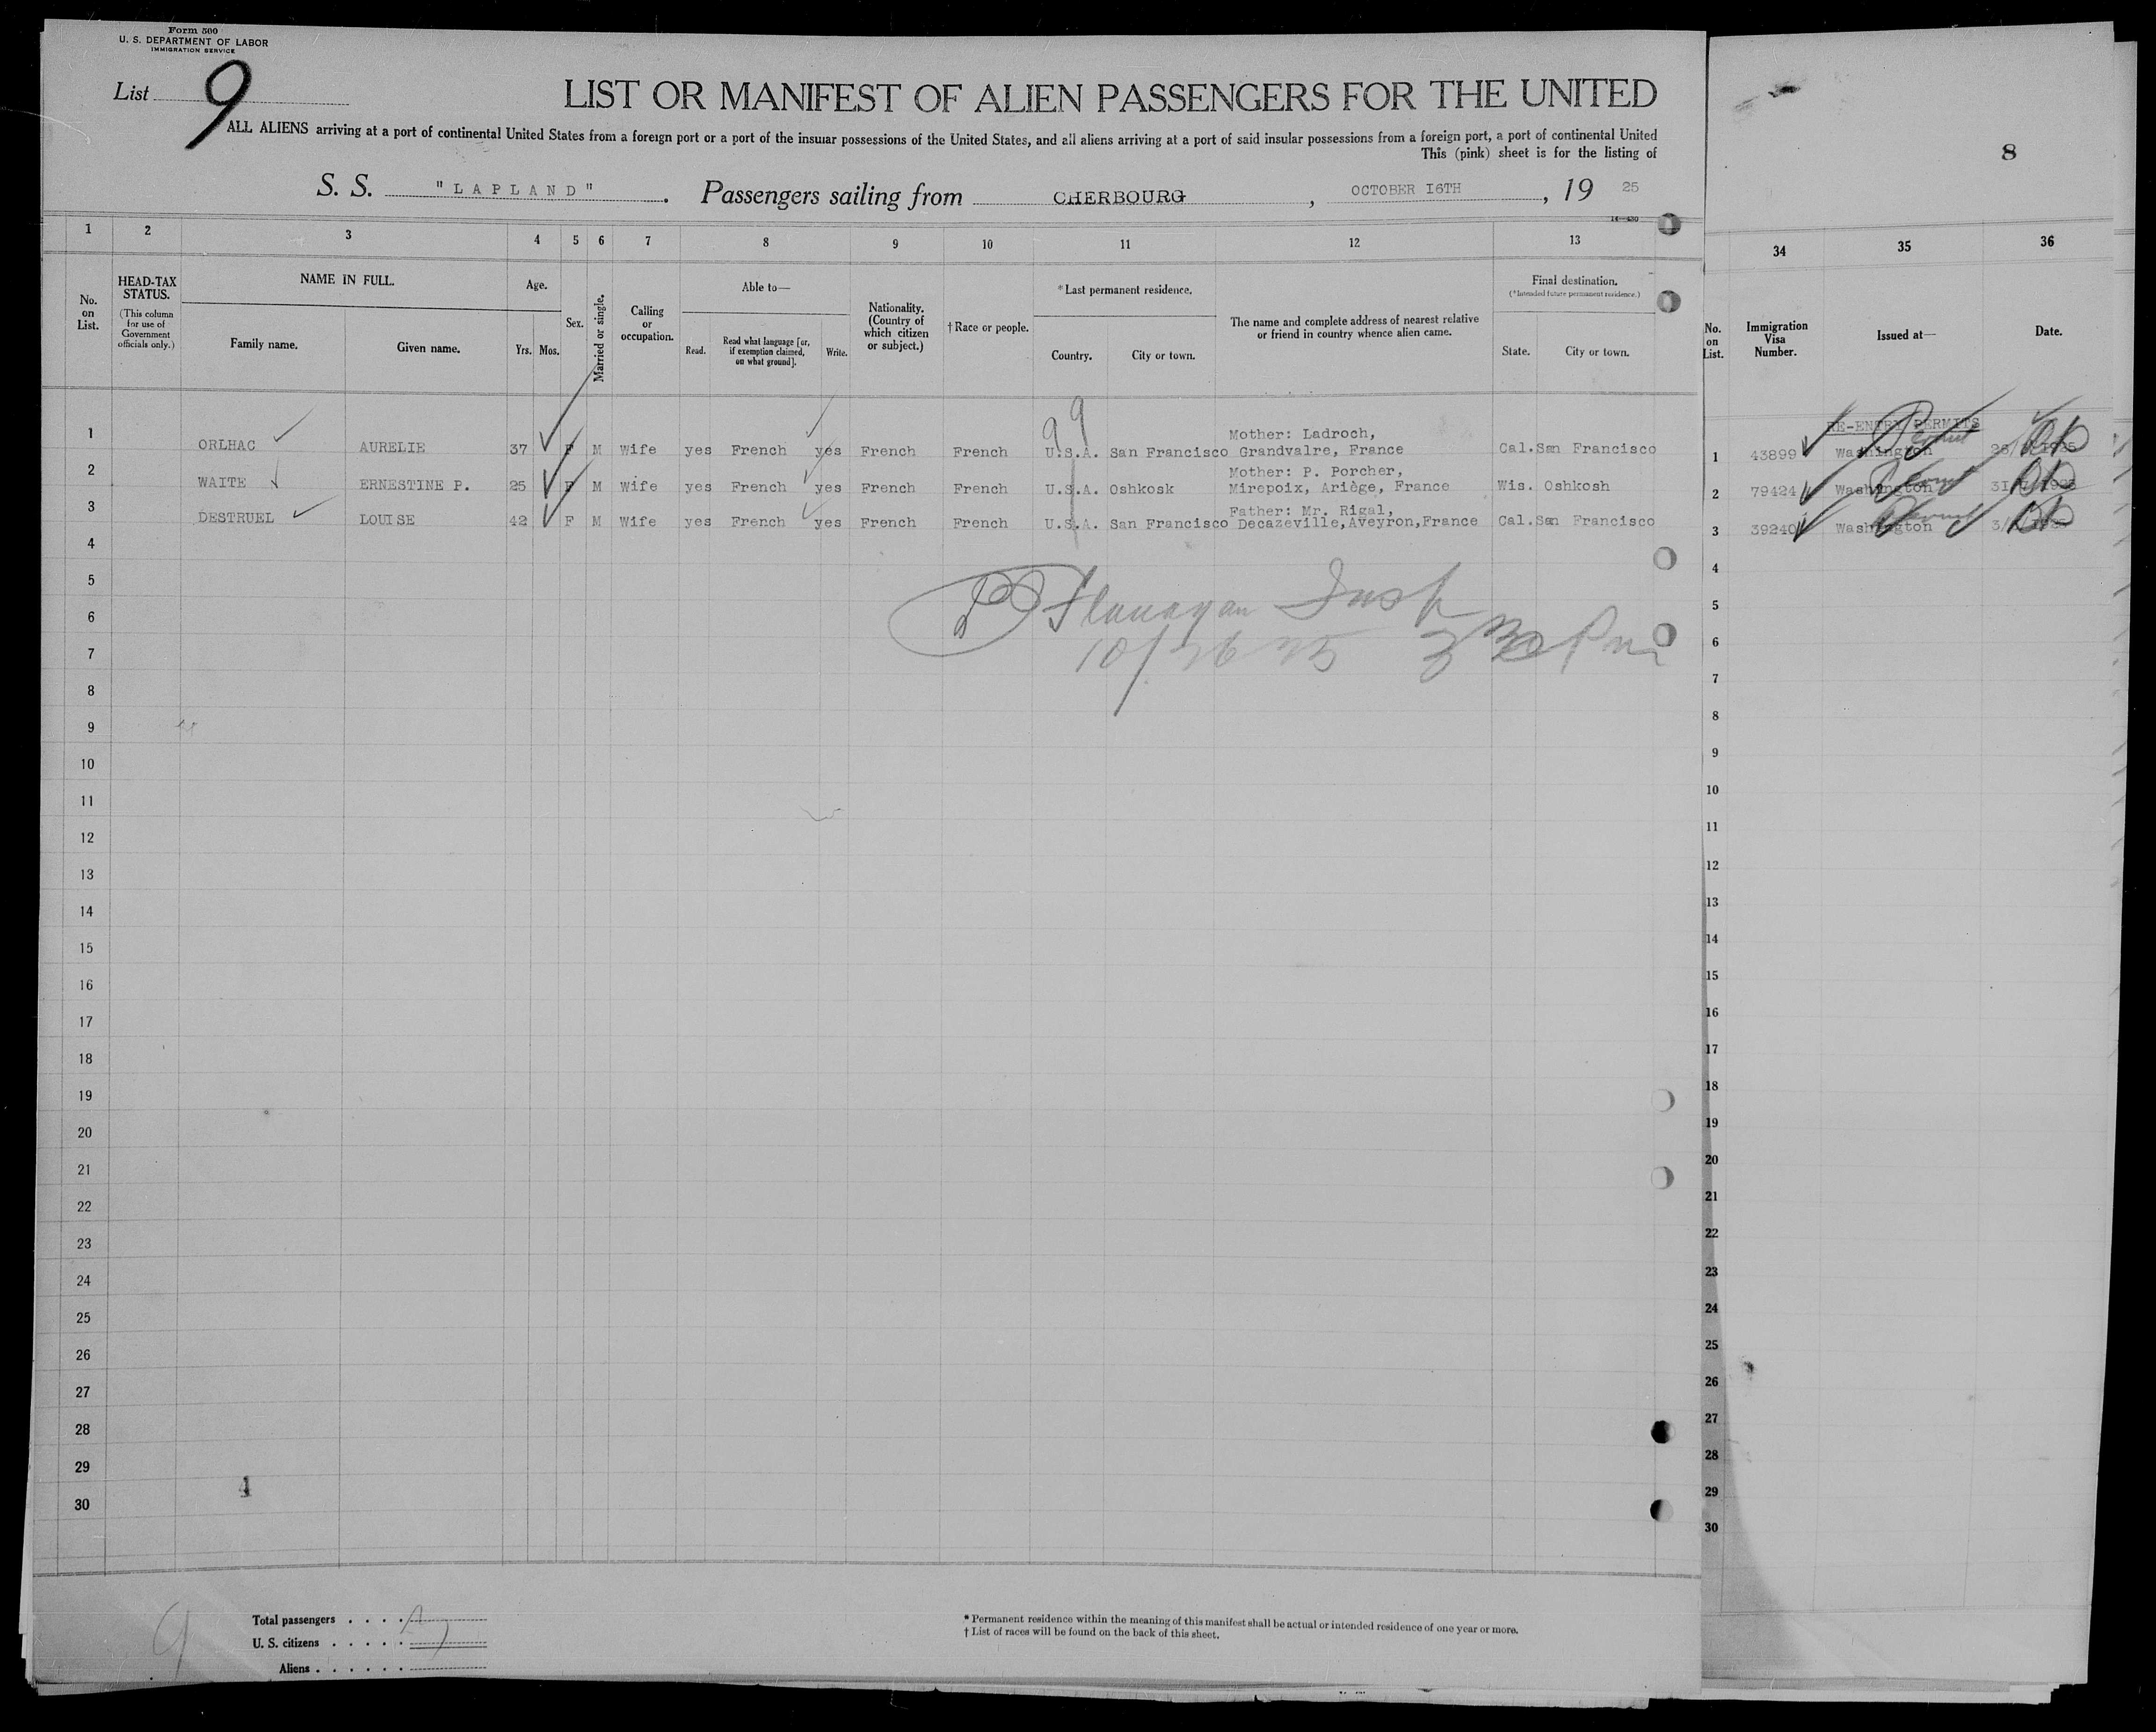 Form 500
U. S. DEPARTMENT OF LABOR
IMMIGRATION SERVICE
List 9
LIST OR MANIFEST OF ALIEN PASSENGERS FOR THE UNITED
ALL ALIENS arriving at a port of continental United States from a foreign port or a port of the insular possessions of the United States, and all aliens arriving at a port of said insular possessions from a foreign port, a port of continental United
This (pink) sheet is for the listing of
8
S. S. "LAPLAND". Passengers sailing from CHERBOURG, OCTOBER I6TH, 19 25
1 2 3 4 5 6 7 8 9 10 11 12 13
34 35 36
No. on List.
HEAD-TAX STATUS.
(This column for use of Government officials only.)
NAME IN FULL.
Family name.
Given name.
Age.
Yrs. Mos.
Sex.
Married or single.
Calling or occupation.
Able to—
Read.
Read what language [or, if exemption claimed, on what ground].
Write.
Nationality. (Country of which citizen or subject.)
† Race or people.
* Last permanent residence.
Country.
City or town.
The name and complete address of nearest relative or friend in country whence alien came.
Final destination.
(*Intended future permanent residence.)
State.
City or town.
No. on List.
Immigration Visa Number.
Issued at—
Date.
RE-ENTRY PERMITS
Mother: Ladroch,
1 ORLHAC AURELIE 37 F M Wife yes French yes French French U.S.A. San Francisco Grandvalre, France Cal. San Francisco
1 43899 Washington
Mother: P. Porcher,
2 WAITE ERNESTINE P. 25 F M Wife yes French yes French French U.S.A. Oshkosk Mirepoix, Ariège, France Wis. Oshkosh
2 79424 Washington
Father: Mr. Rigal,
3 DESTRUEL LOUISE 42 F M Wife yes French yes French French U.S.A. San Francisco Decazeville,Aveyron,France Cal. San Francisco
3 39240 Washington
Flanagan Insp
4
5
6
7
8
9
10
11
12
13
14
15
16
17
18
19
20
21
22
23
24
25
26
27
28
29
30
4
5
6
7
8
9
10
11
12
13
14
15
16
17
18
19
20
21
22
23
24
25
26
27
28
29
30
9
Total passengers
U. S. citizens
Aliens
* Permanent residence within the meaning of this manifest shall be actual or intended residence of one year or more.
† List of races will be found on the back of this sheet.